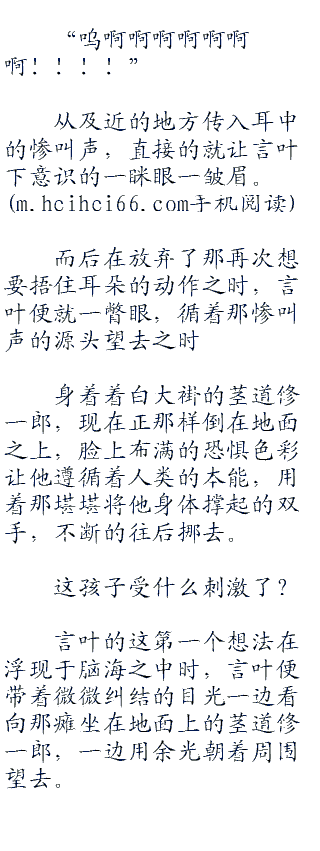 “呜啊啊啊啊啊啊
啊！！！！”
从及近的地方传入耳中
的惨叫声，直接的就让言叶
下意识的一眯眼一皱眉。
(m.hcihci66.com手机阅读)
而后在放弃了那再次想
要捂住耳朵的动作之时，言
叶便就一瞥眼，循着那惨叫
声的源头望去之时
身着着白大褂的茎道修
一郎，现在正那样倒在地面
之上，脸上布满的恐惧色彩
让他遵循着人类的本能，用
着那堪堪将他身体撑起的双
手，不断的往后挪去。
这孩子受什么刺激了？
言叶的这第一个想法在
浮现于脑海之中时，言叶便
带着微微纠结的目光一边看
向那瘫坐在地面上的茎道修
一郎，一边用余光朝着周围
望去。